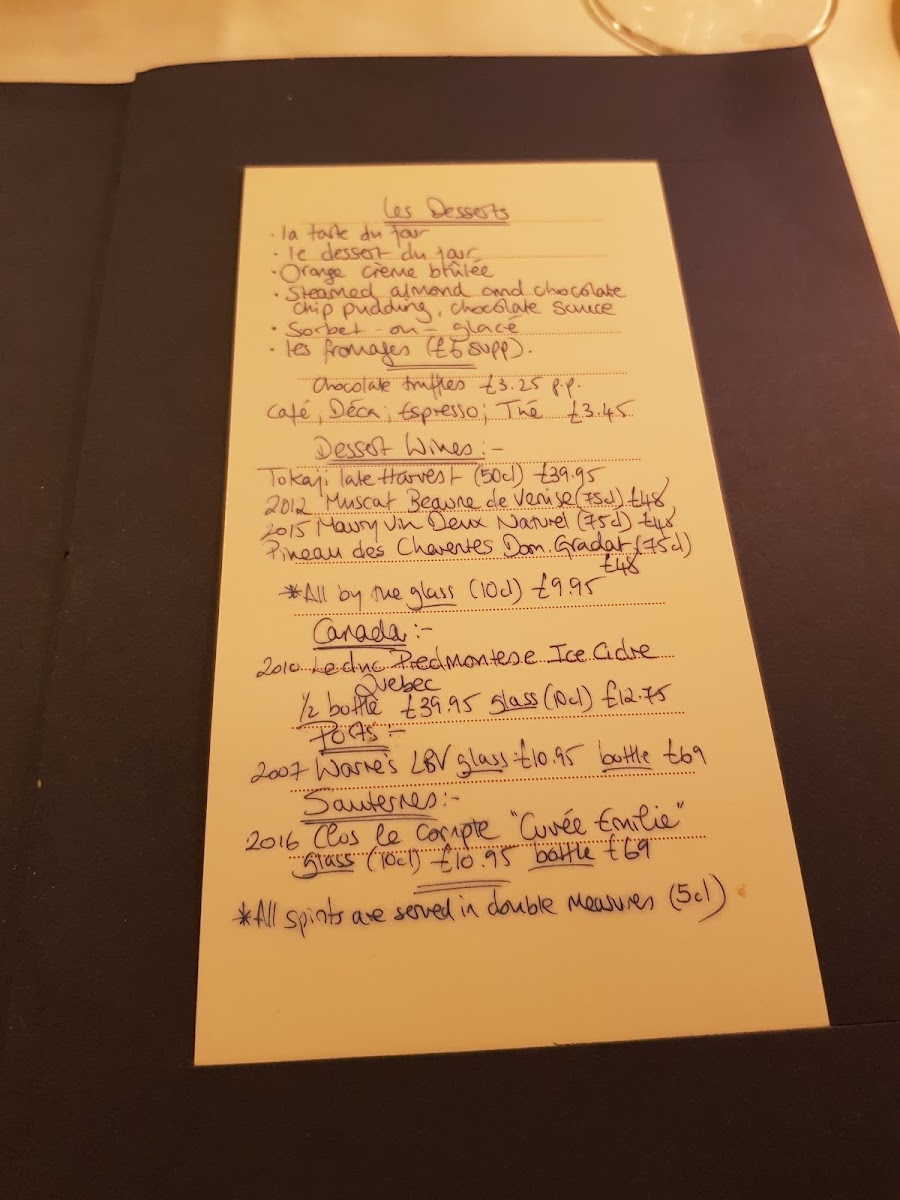 Les Desserts
· la tarte du jour
· le dessert du jour
· Orange crème brûlée
· Steamed almond and chocolate
chip pudding, chocolate sauce
· Sorbet - ou - glacé
· les fromages (£5 supp).
Chocolate truffles £3.25 p.p.
Café; Déca; Espresso; Thé £3.45
Dessert Wines:-
Tokaji late Harvest (50cl) £39.95
2012 Muscat Beaume de Venise (75cl) £48
2015 Maury Vin Deux Naturel (75cl) £48
Pineau des Charentes Dom. Gradat (75cl)
£48
*All by the glass (10cl) £9.95
Canada:-
2010 Leduc Piedmontese Ice Cidre
Quebec
1/2 bottle £39.95 glass (10cl) £12.75
Ports:-
2007 Warre's LBV glass £10.95 bottle £69
Sauternes:-
2016 Clos le Compte "Cuvée Emilie"
glass (10cl) £10.95 bottle £69
*All spirits are served in double measures (5cl)